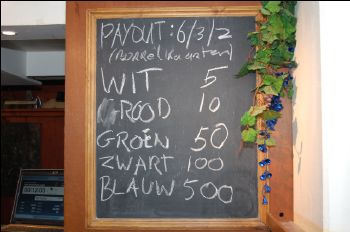 PAYOUT: 6/3/2
(BORRELKAARTEN)
WIT 5
ROOD 10
GROEN 50
ZWART 100
BLAUW 500